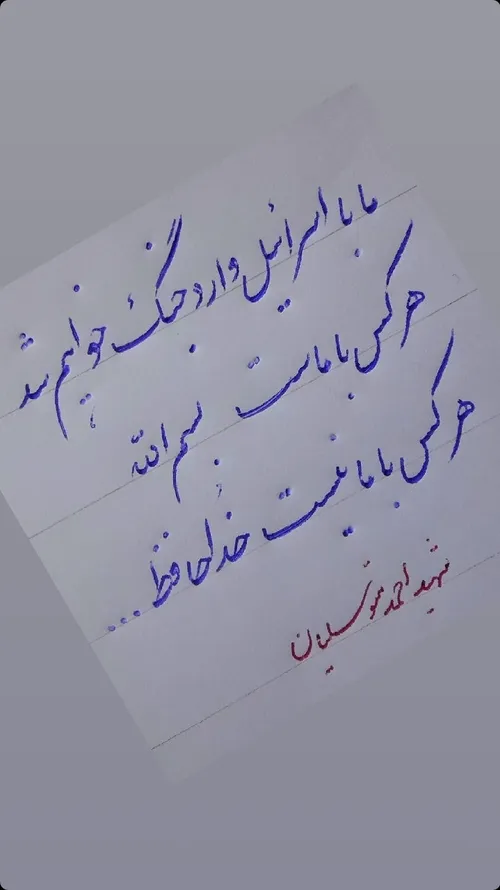 ما با اسرائیل وارد جنگ خواهیم شد
هرکس با ماست بسم الله
هرکس با ما نیست خداحافظ...
شهید احمد متوسلیان